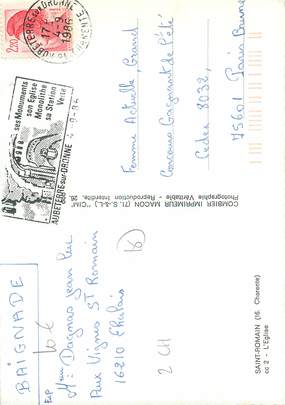 16 AUBETERRE s DRONNE
CHARENTE
17 H
-9
1986
2,20
ses Monuments
son Eglise
Monolithe
sa Station
Verte
AUBETERRE-sur-DRONNE
BAIGNADE
Femme Actuelle, Grand
Concours Gagnant de l'été
Cedex 3032,
75601 Paris Brune
COMBIER IMPRIMEUR MACON (71. S.-&-L.) "CIM"
Photographie Véritable - Reproduction Interdite.
SAINT-ROMAIN (16. Charente)
cc 2 - L'Eglise
Exp
Jean Luc
Aux Vignes ST Romain
16210 Chalais
16
2 CH